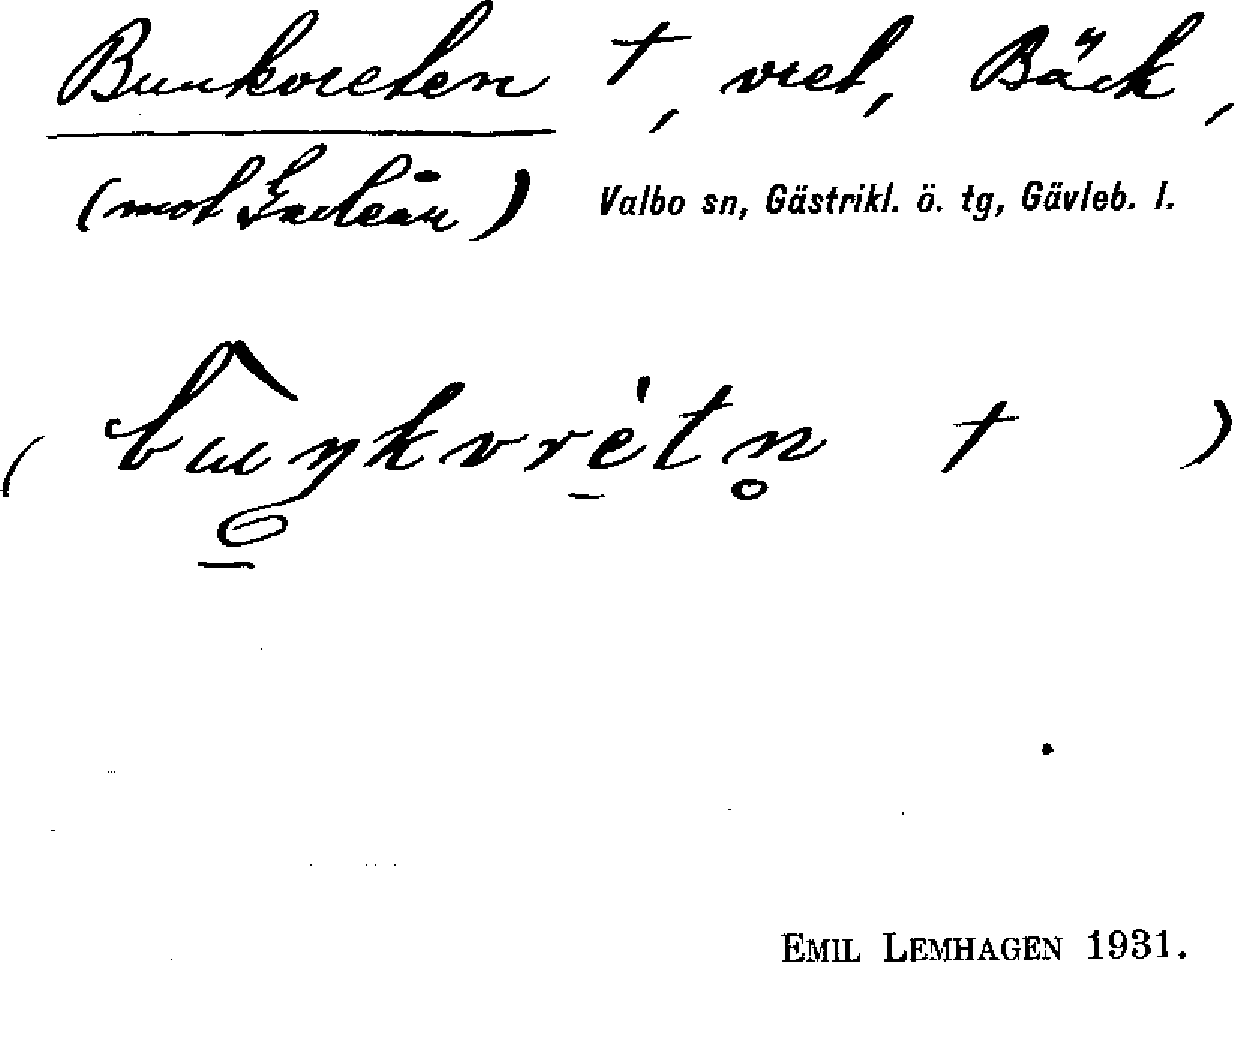 Bunkvreten †, vret, Bäck,
(mot Gavleån) Valbo sn, Gästrikl. ö. tg, Gävleb. l.
( †)
EMIL LEMHAGEN 1931.